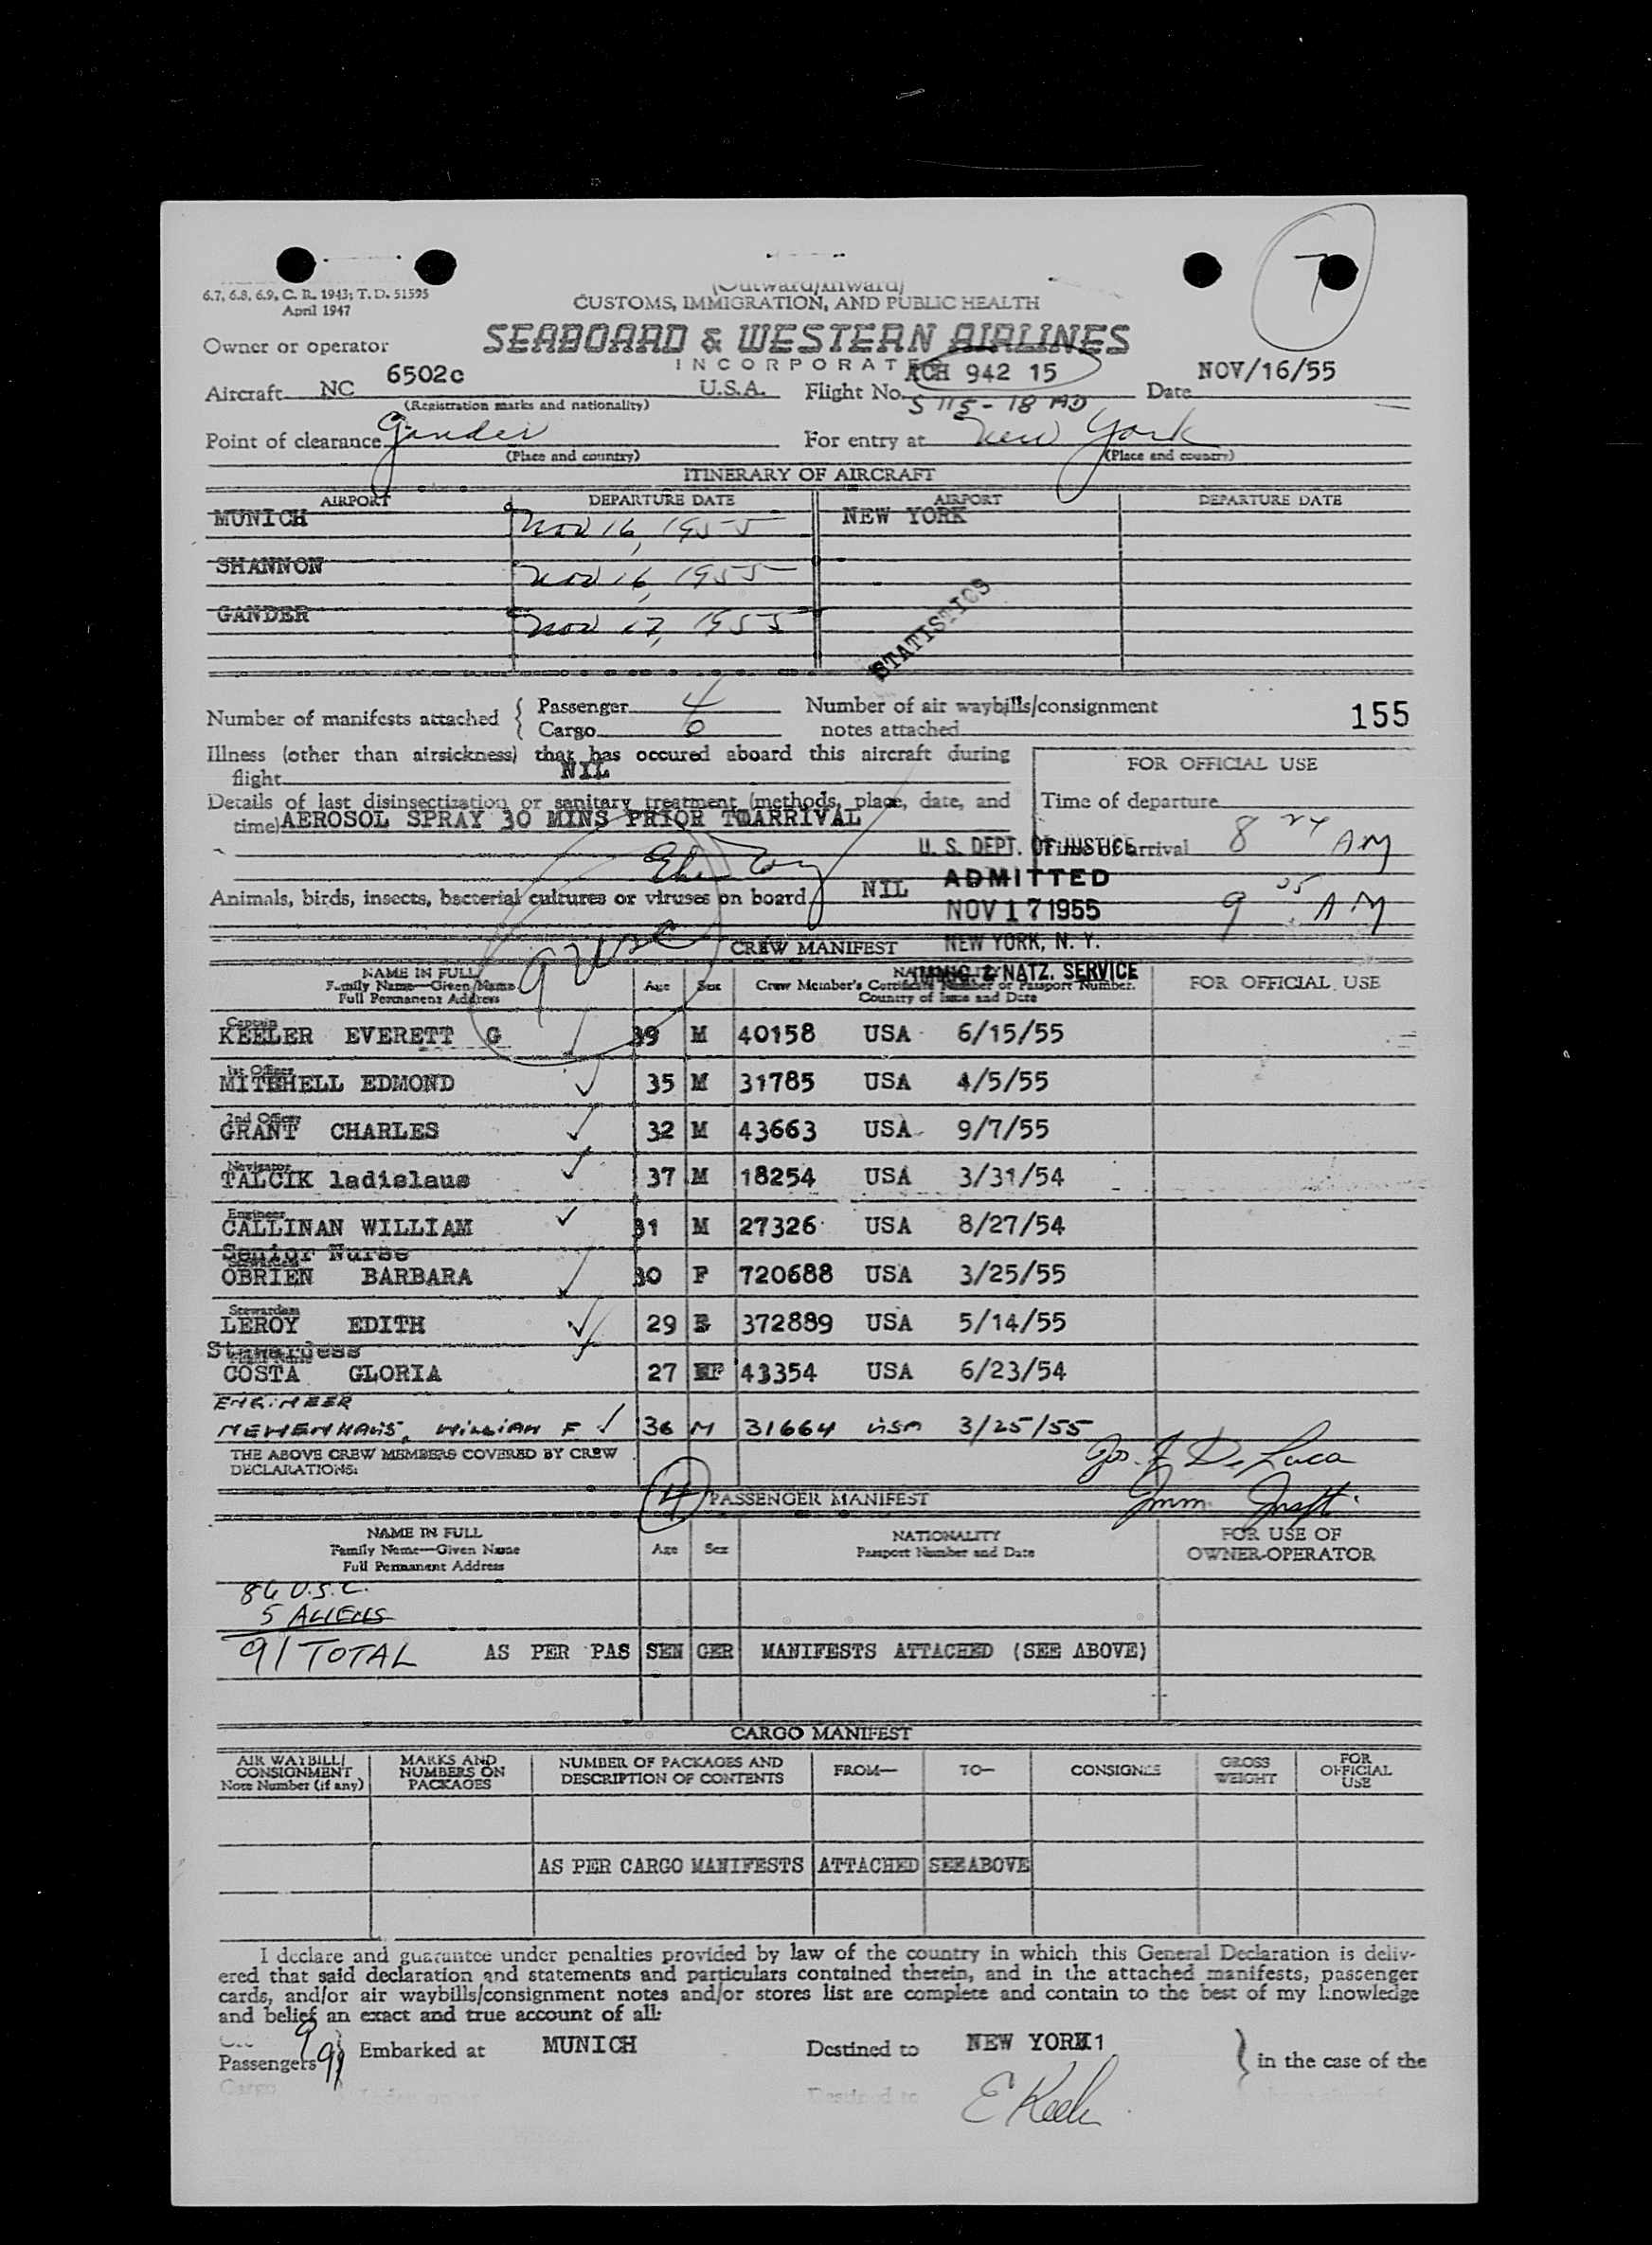 7
6.7, 6.8, 6.9, C. R. 1943; T. D. 51595
April 1947
(Outward/Inward)
CUSTOMS, IMMIGRATION, AND PUBLIC HEALTH
Owner or operator
SEABOARD & WESTERN AIRLINES
INCORPORATE
Aircraft NC 6502c U.S.A. Flight No. ACH 942 15 Date NOV/16/55
(Registration marks and nationality)
S 115-18 MD
Point of clearance Gander For entry at New York
(Place and country) (Place and country)
ITINERARY OF AIRCRAFT
AIRPORT DEPARTURE DATE AIRPORT DEPARTURE DATE
MUNICH Nov 16, 1955 NEW YORK
SHANNON Nov 16, 1955
GANDER Nov 17, 1955
STATISTICS
Number of manifests attached { Passenger 4 Number of air waybills/consignment 155
Cargo 0 notes attached
Illness (other than airsickness) that has occured aboard this aircraft during
flight NIL
FOR OFFICIAL USE
Details of last disinsectization or sanitary treatment (methods, place, date, and
time) AEROSOL SPRAY 30 MINS PRIOR TOARRIVAL
Time of departure
U. S. DEPT. OF JUSTICE
Time of arrival 8 24 AM
Animals, birds, insects, bacterial cultures or viruses on board NIL
ADMITTED
NOV 17 1955
NEW YORK, N. Y.
IMMIG. & NATZ. SERVICE
9 05 AM
CREW MANIFEST
NAME IN FULL
Family Name—Given Name
Full Permanent Address
Age Sex
Crew Member's Certificate Number or Passport Number.
Country of Issue and Date
FOR OFFICIAL USE
Captain
KEELER EVERETT G 39 M 40158 USA 6/15/55
1st Officer
MITEHELL EDMOND 35 M 31785 USA 4/5/55
2nd Officer
GRANT CHARLES 32 M 43663 USA 9/7/55
Navigator
TALCIK ladislaus 37 M 18254 USA 3/31/54
Engineer
CALLINAN WILLIAM 31 M 27326 USA 8/27/54
Senior Nurse
OBRIEN BARBARA 30 F 720688 USA 3/25/55
Stewardess
LEROY EDITH 29 F 372889 USA 5/14/55
Stewardess
COSTA GLORIA 27 F 43354 USA 6/23/54
ENGINEER
NEWENHAUS, WILLIAM F 36 M 31664 USA 3/25/55
THE ABOVE CREW MEMBERS COVERED BY CREW
DECLARATIONS:
Jos. F De Luca
Imm. Inspt.
4
PASSENGER MANIFEST
NAME IN FULL
Family Name—Given Name
Full Permanent Address
Age Sex
NATIONALITY
Passport Number and Date
FOR USE OF
OWNER-OPERATOR
86 U.S.C.
5 ALIENS
91 TOTAL AS PER PAS SEN GER MANIFESTS ATTACHED (SEE ABOVE)
CARGO MANIFEST
AIR WAYBILL/
CONSIGNMENT
Note Number (if any)
MARKS AND
NUMBERS ON
PACKAGES
NUMBER OF PACKAGES AND
DESCRIPTION OF CONTENTS
FROM—
TO—
CONSIGNEE
GROSS
WEIGHT
FOR
OFFICIAL
USE
AS PER CARGO MANIFESTS ATTACHED SEEABOVE
I declare and guarantee under penalties provided by law of the country in which this General Declaration is deliv-
ered that said declaration and statements and particulars contained therein, and in the attached manifests, passenger
cards, and/or air waybills/consignment notes and/or stores list are complete and contain to the best of my knowledge
and belief an exact and true account of all:
Passengers 91 } Embarked at MUNICH Destined to NEW YORK1 } in the case of the
Cargo Destined to
E Keeler